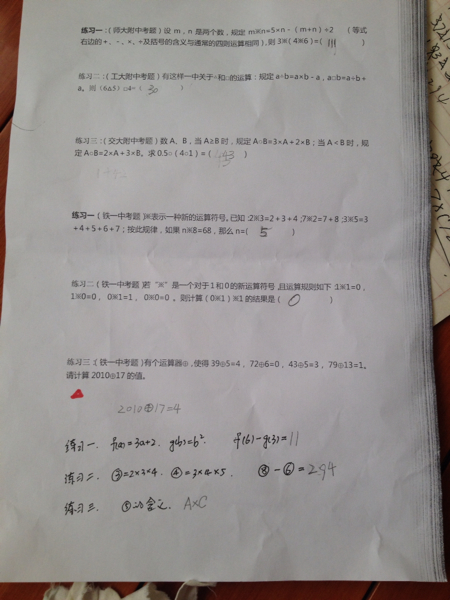 练习一:(师大附中考题)设 m,n 是两个数,规定 m※n=5×n-(m+n)÷2 (等式
右边的 +、-、×、÷及括号的含义与通常的四则运算相同),则 3※(4※6)=( 111 )
练习二:(工大附中考题)有这样一中关于▵和▫的运算:规定 a▵b=a×b-a,a▫b=a÷b+
a。则(6▵5)▫4=( 30 )
练习三:(交大附中考题)数 A、B,当 A≥B 时,规定 A○B=3×A+2×B;当 A<B 时,规
定 A○B=2×A+3×B。求 0.5○(4○1)=( 43 )
练习一(铁一中考题)※表示一种新的运算符号。已知:2※3=2+3+4;7※2=7+8;3※5=3
+4+5+6+7;按此规律,如果 n※8=68,那么 n=( 5 )
练习二:(铁一中考题)若“※”是一个对于1和0的新运算符号,且运算规则如下:1※1=0,
1※0=0, 0※1=1, 0※0=0 。则计算(0※1)※1的结果是( 0 )
练习三:(铁一中考题)有个运算器⊕,使得 39⊕5=4, 72⊕6=0, 43⊕5=3, 79⊕13=1。
请计算 2010⊕17 的值。
2010⊕17=4
练习一. f(a)=3a+2. g(b)=b². f(6)-g(3)=11
练习二. ③=2×3×4. ④=3×4×5. ⑧-⑥=294
练习三. 的含义. A×C